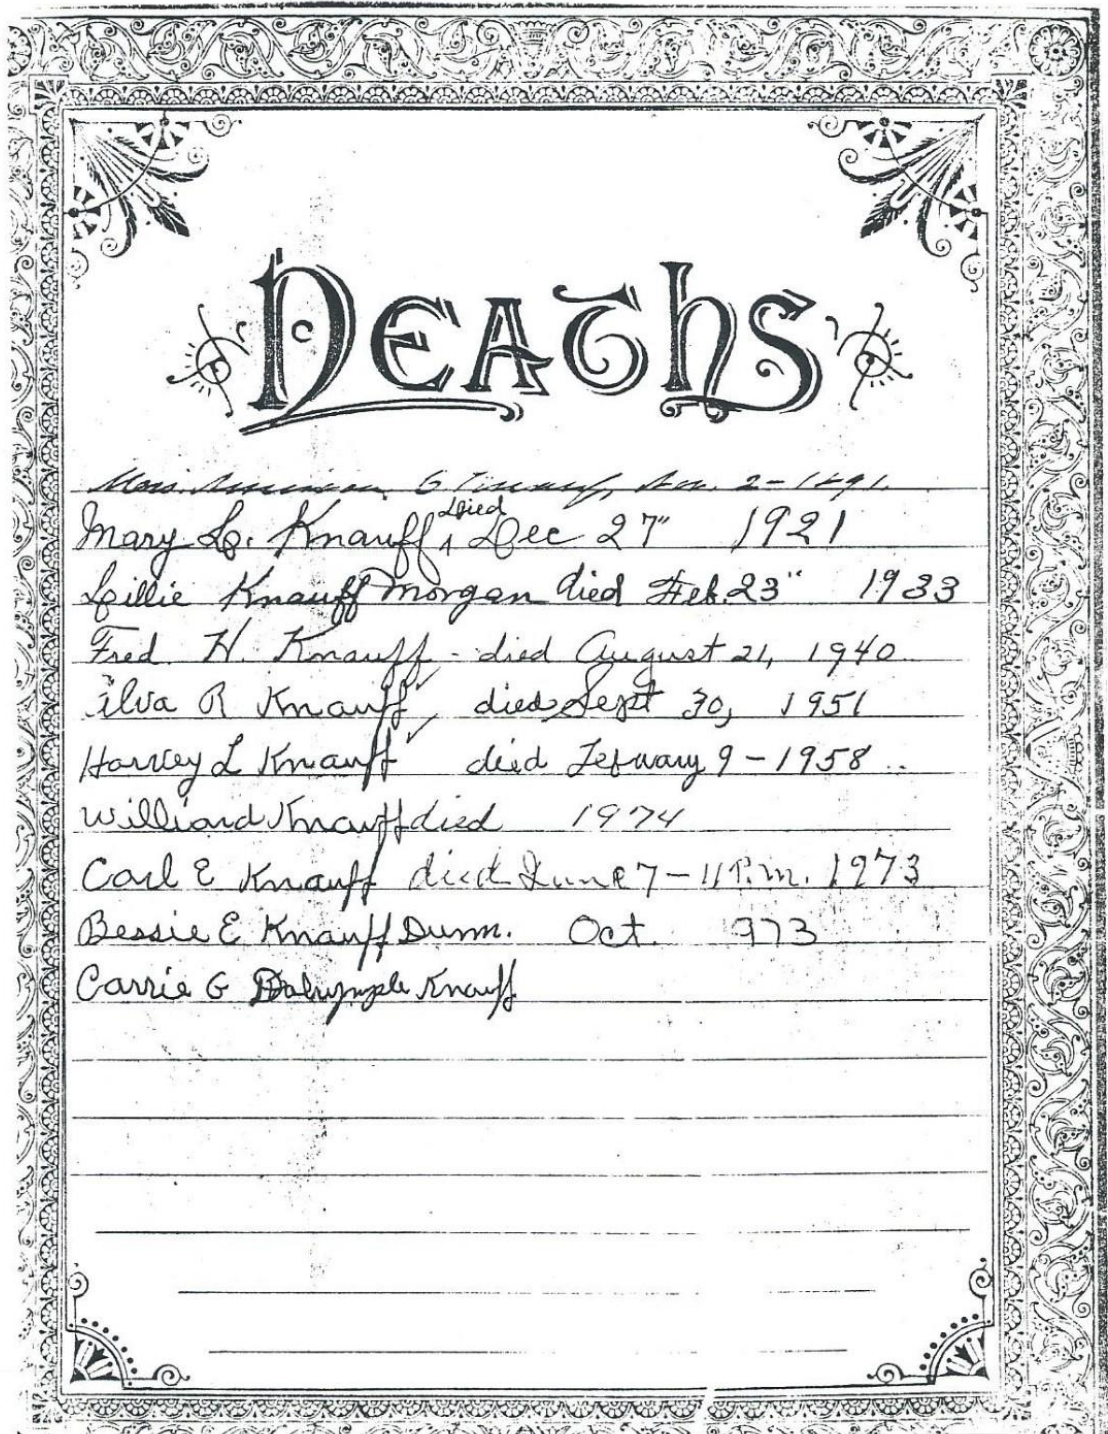 DEATHS
Mrs. G. 2 - 1891.
Mary L. Knauff Died Dec 27" 1921
Lillie Knauff Morgan died Feb. 23" 1933
Fred. H. Knauff - died August 21, 1940
ilva R Knauff, died Sept 30, 1951
Harvey L Knauff died Febuary 9 - 1958
Williard Knauff died 1974
Carl E Knauff died June 7 - 11 P.m. 1973
Bessie E Knauff Dunn. Oct. 973
Carrie G Dalrymple Knauff